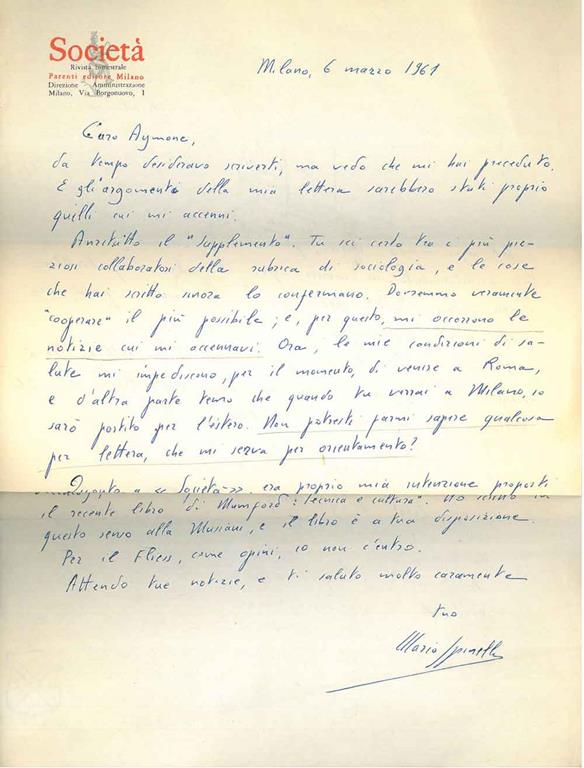 Società
Rivista bimestrale
Parenti editore Milano
Direzione Amministrazione
Milano, Via Borgonuovo, 1
Milano, 6 marzo 1961
Caro Aymone,
da tempo desideravo scriverti, ma vedo che mi hai preceduto.
E gli argomenti della mia lettera sarebbero stati proprio
quelli cui mi accenni.
Anzitutto il "Supplemento". Tu sei certo tra i più pre-
ziosi collaboratori della rubrica di sociologia, e le cose
che hai scritto sinora lo confermano. Dovremmo veramente
"cooperare" il più possibile; e, per questo, mi occorrono le
notizie cui mi accennavi. Ora, le mie condizioni di sa-
lute mi impediscono, per il momento, di venire a Roma,
e d'altra parte temo che quando tu verrai a Milano, io
sarò partito per l'estero. Non potresti farmi sapere qualcosa
per lettera, che mi serva per orientamento?
a « Società ». era proprio mia intenzione proporti
il recente libro di Mumford: "Tecnica e cultura". Ho scritto in
questo senso alla Musiani, e il libro è a tua disposizione.
Per il Fliess, come opini, io non c'entro.
Attendo tue notizie, e ti saluto molto caramente
tuo
Mario Spinella